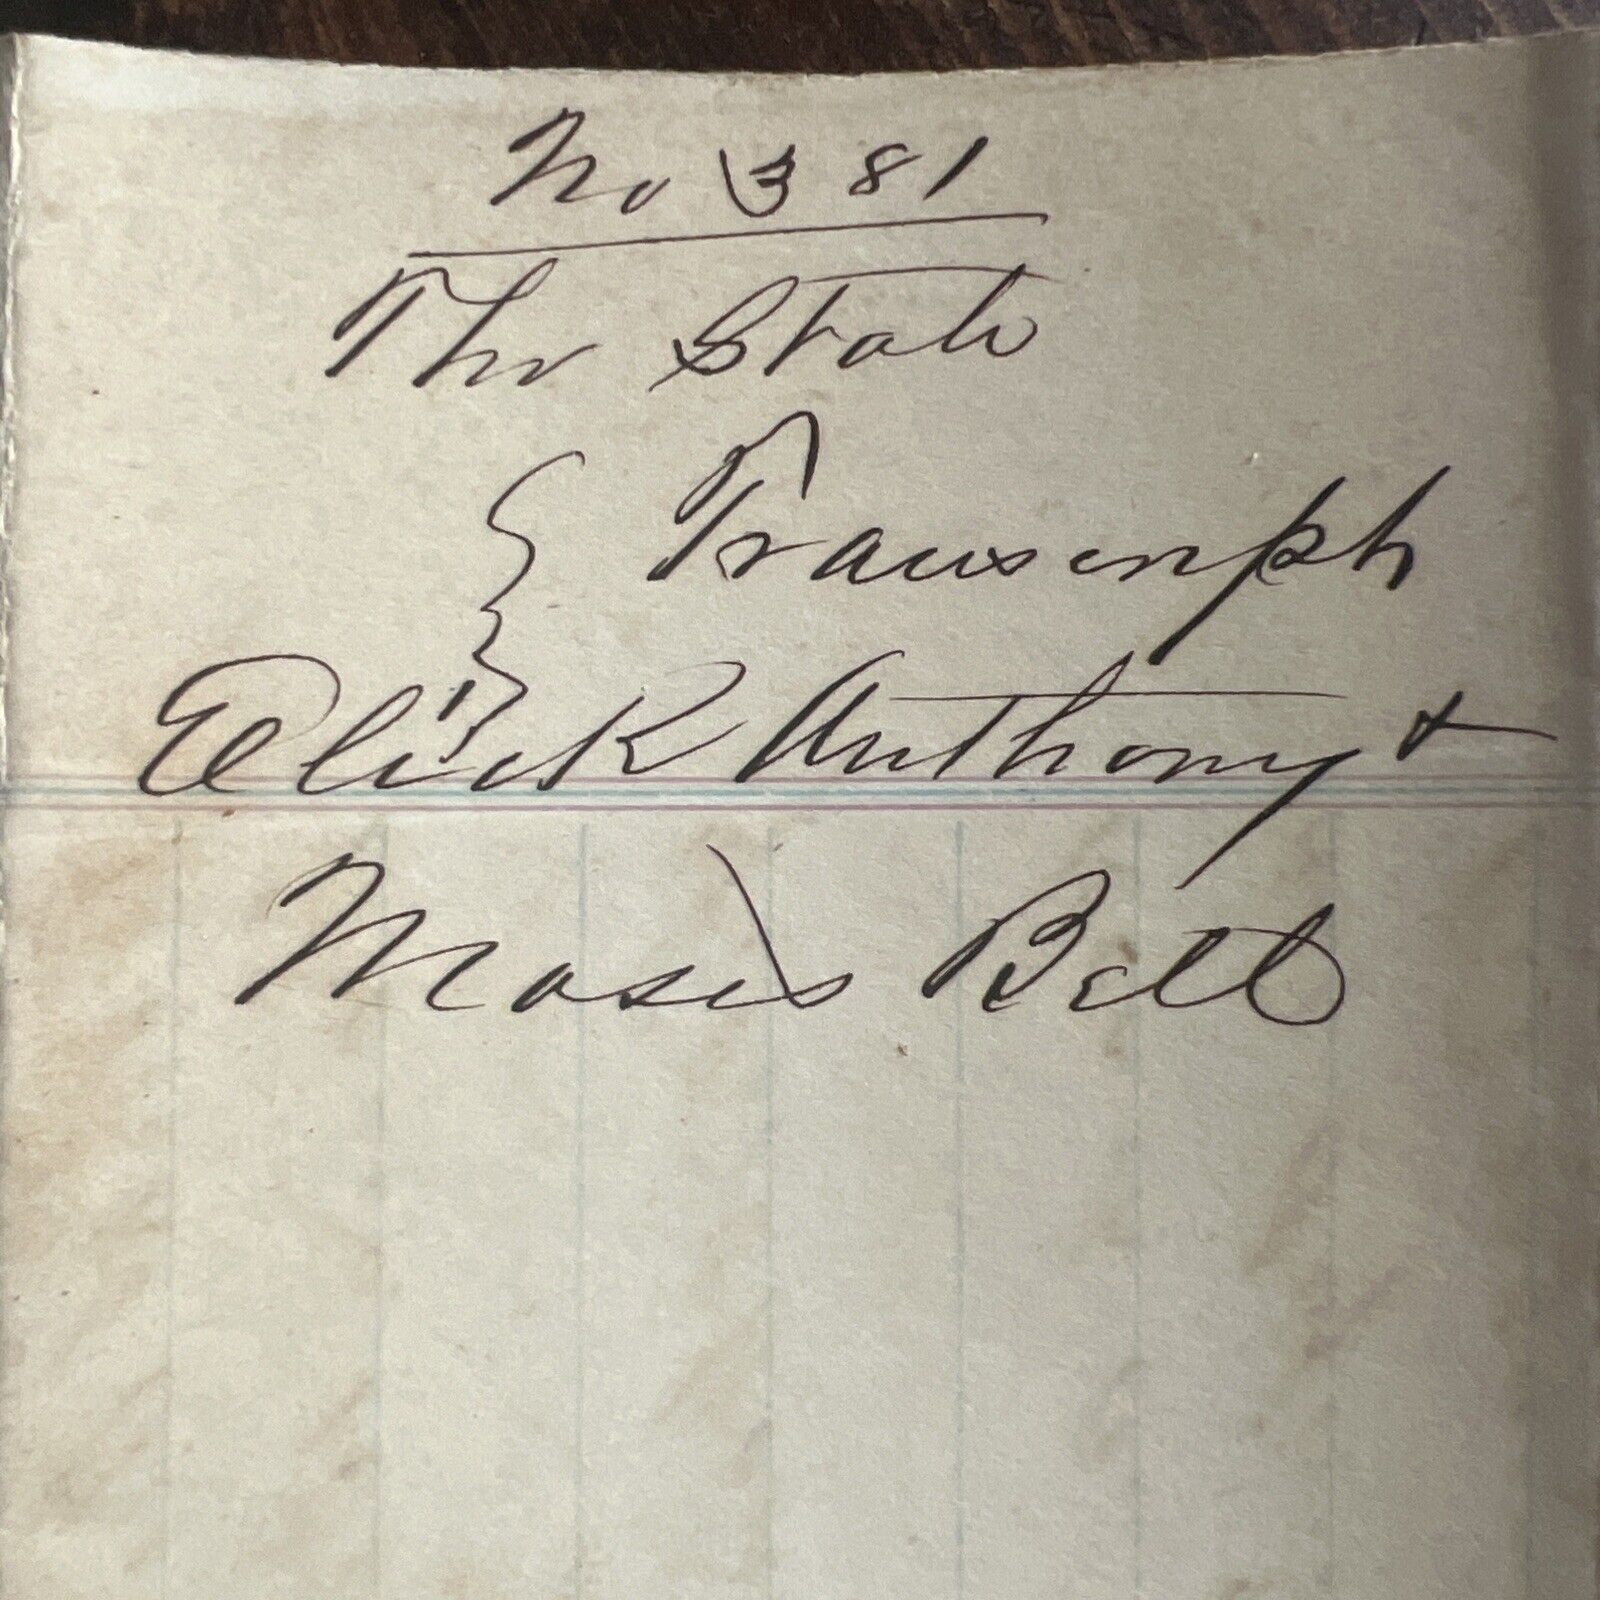 No 381
The State
} Transcript
Elick Anthony &
Moses Bell